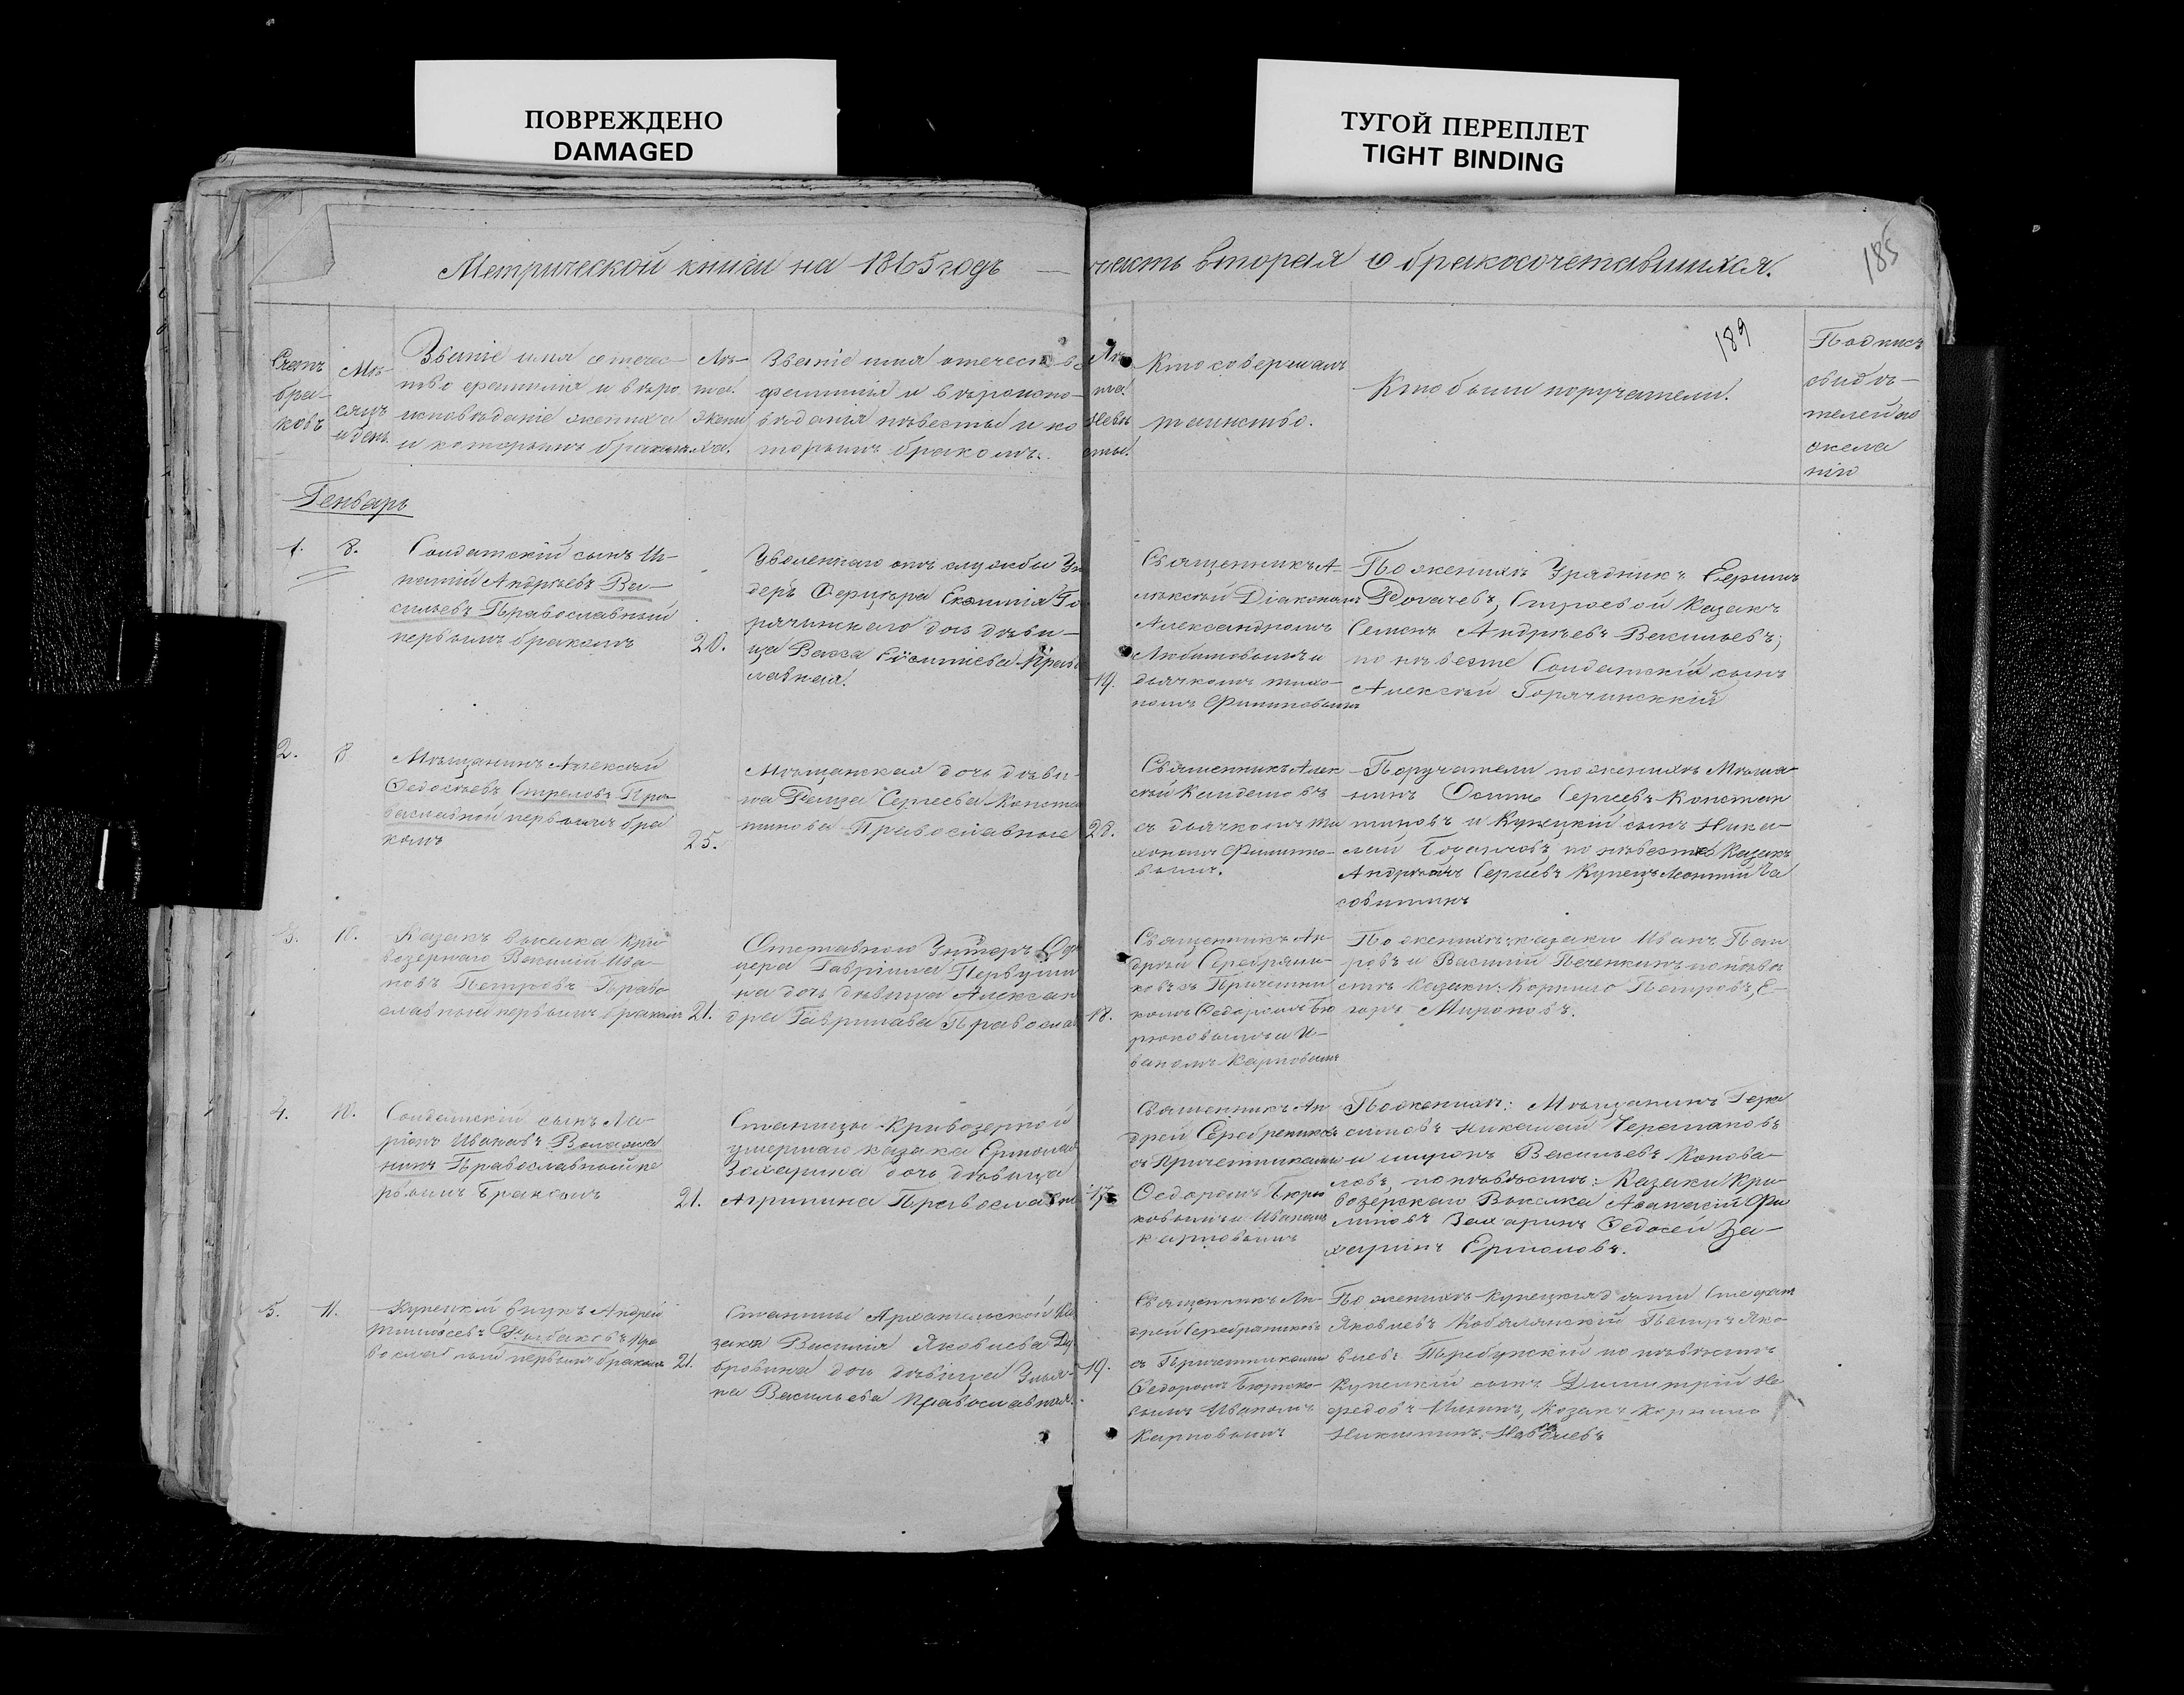 ПОВРЕЖДЕНО
DAMAGED
ТУГОЙ ПЕРЕПЛЕТ
TIGHT BINDING
185
Метрической книги на 1865 годъ — часть вторая о бракосочетавшихся.
189
Счетъ
бра-
ковъ
Мѣ-
сяцъ
и день
Званіе имя отечес-
тво фамилия и вѣро
исповѣданіе жениха
и которымъ бракомъ
Лѣ-
та
жени
ха.
Званіе имя отечество
фамилія и вѣроиспо-
вѣданія невесты и ко
торымъ бракомъ.
Лѣ
та
Невѣ
сты.
Кто совершалъ
таинство.
Кто были поручатели.
Подпись
свидѣ-
телей по
жела
нію
Генварь
1.
8.
Солдатскій сынъ И-
патій Андрѣевъ Ва-
сильевъ Православный
первымъ бракомъ
20.
Уволеннаго отъ службы Ун
деръ Офицера
рячинскаго дочь дѣви-
ца Васса
славная.
19.
Священникъ А-
лексѣй Діакономъ
Александромъ
Любимовымъ и
дьячкомъ Тихо-
номъ Филиповымъ
По женихѣ Урядникъ
Рогачевъ, Строевой Казакъ
Семенъ Андрѣевъ Васильевъ;
по невесте Солдатскій сынъ
Алексѣй Горячинсккій
2.
8
Мѣщанинъ Алексѣй
Федосѣевъ Стреловъ Пра-
вославной первымъ бра
комъ
25.
Мѣщанская дочь дѣви-
Сергеева Конста
тинова Православные
20.
Священникъ Алек
сѣй
съ дьячкомъ Ти
хономъ Филипо-
вымъ.
Поручатели по женихѣ Мѣща-
нинъ Осипъ Сергеевъ Констан
тиновъ и Купецкій сынъ Нико-
лай по невестѣ Казакъ
Андрѣй Сергіевъ Купецъ Леонтій Ча
совитинъ
3.
10.
Казакъ выселка Кри
возернаго Василій Ива-
новъ Петровъ Право
славный первымъ бракомъ
21.
Отставного Унтеръ Офи
цера Гавріила Первуши
на дочь дѣвица Алексан
дра Гаврилава Православ
18.
Священникъ Ан
дрей Серебрени-
ковъ съ Причетни
комъ Федоромъ Бю
рюковымъ и И-
ваномъ Карповымъ
По женихѣ: казаки Иванъ Пет
ровъ и Василій Печенкинъ по невѣ
стѣ Казаки: Корнило Петровъ, Е-
горъ Мироновъ.
4.
10.
Солдатскій сынъ Ла-
ріонъ Ивановъ
нинъ Православный пе
рвымъ бракомъ
21.
Станицы Кривозерной
умершаго казака Ермолая
Захарина дочь дѣвица
Агрипина Православна
17
Священникъ Ан
дрей Серебрениковъ
съ Причетниками
Федоромъ Бюрю
ковымъ и Иваномъ
Карповымъ
По женихѣ: Мѣщанинъ Гера
симовъ Николай Черепановъ
и Миронъ Васильевъ Конова-
ловъ, по невѣстѣ: Казаки Кри
возерскаго Выселка Афанасій Фи
липовъ Захаринъ Федосей За-
харинъ Ермоловъ.
5.
11.
Купецкій внукъ Андрей
Тимофеевъ Рыбаковъ Пра
вославный первымъ бракомъ
21.
Станицы Архангельской Ка
зака Василія Яковлева Ду
бровина дочь дѣвица Улья-
на Васильева Православная.
19.
Священникъ Ан-
дрей Серебряниковъ
съ Причетниками
Федоромъ Бюрюко-
вымъ Иваномъ
Карповымъ
По женихѣ Купецкія дѣти Стефанъ
Яковлевъ Кобылянскій Петръ Яко-
влевъ Требунскій по невѣстѣ
Купецкій сынъ Димитрій Не
федовъ Ильинъ, Козакъ Корнило
Никитинъ